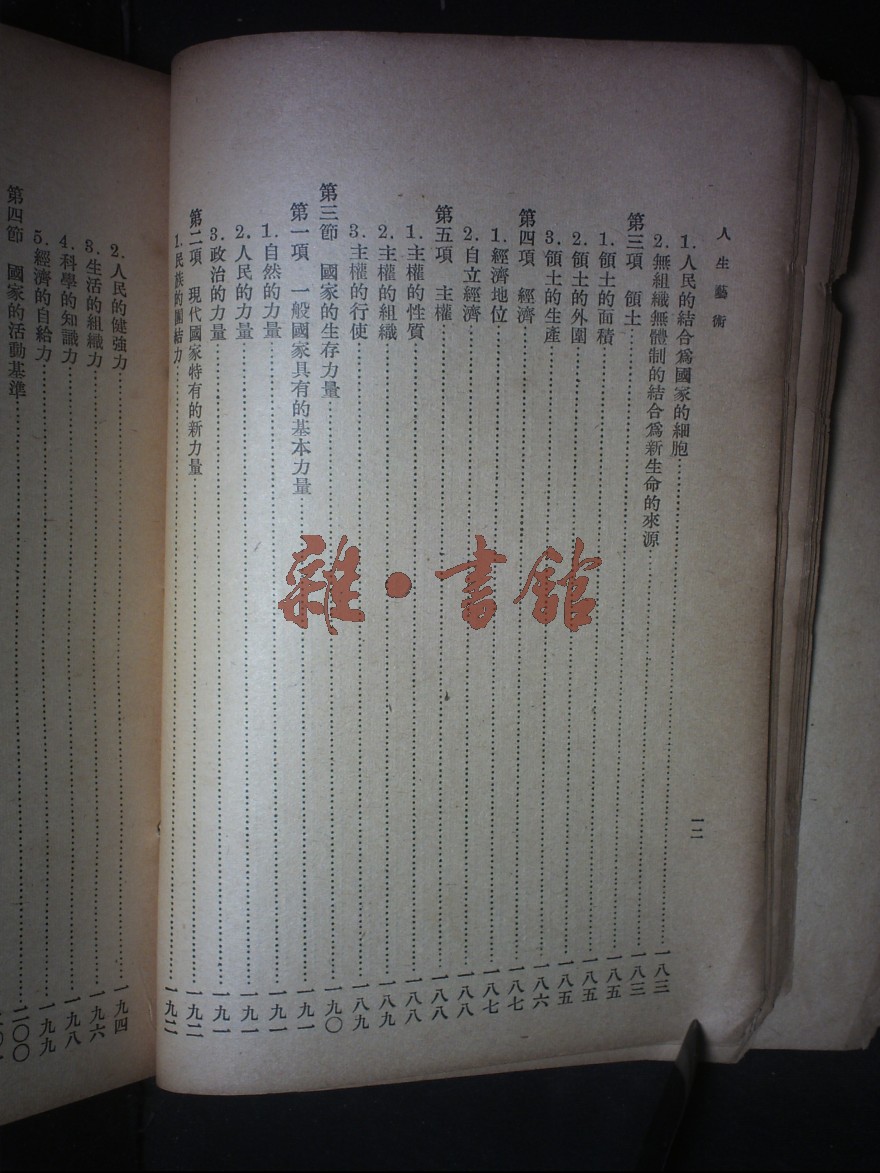 人生藝術
一二
1.人民的結合爲國家的細胞……一八三
2.無組織無體制的結合爲新生命的來源……一八三
第三項 領土……一八五
1.領土的面積……一八五
2.領土的外圍……一八五
3.領土的生產……一八六
第四項 經濟……一八七
1.經濟地位……一八七
2.自立經濟……一八八
第五項 主權……一八八
1.主權的性質……一八八
2.主權的組織……一八九
3.主權的行使……一八九
第三節 國家的生存力量……一九〇
第一項 一般國家具有的基本力量……一九一
1.自然的力量……一九一
2.人民的力量……一九一
3.政治的力量……一九一
第二項 現代國家特有的新力量……一九二
1.民族的團結力……一九二
2.人民的健強力……一九四
3.生活的組織力……一九六
4.科學的知識力……一九八
5.經濟的自給力……一九九
第四節 國家的活動基準……二〇〇
雜·書館